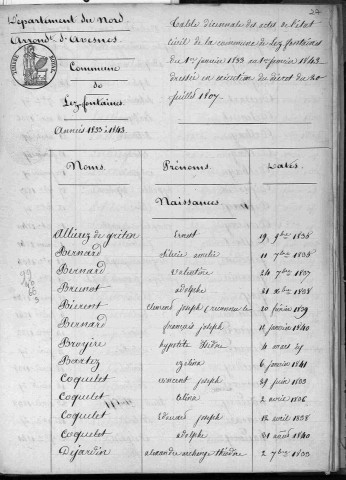 24
Département du Nord
Arrondt d'Avesnes
Commune
de
Lez-fontaines
Années 1833 à 1843
Table décennale des actes de l'état
civil de la commune de Lez-fontaines
du 1er janvier 1833 au 1er janvier 1843
dressée en exécution du décret du 20
juillet 1807.
Noms. Prénoms. Dates.
Naissances.
Alliez de Ernest 19 9bre 1838
Bernard Silvie emélie 11 7bre 1838
Bernard Valentine 24 7bre 1837
Brunot adolphe 31 Xbre 1838
Bierent clément joseph 20 février 1839
Bernard françois joseph 12 janvier 1840
Broyère hypolite 4 mars
Bartez 6 janvier 1841
Coquelet vincent joseph 29 juin 1833
Coquelet 2 avril 1836
Coquelet Edouard joseph 12 avril 1838
Coquelet adolphe 31 août 1840
Dejardin alexandre théodore 2 7bre 1833